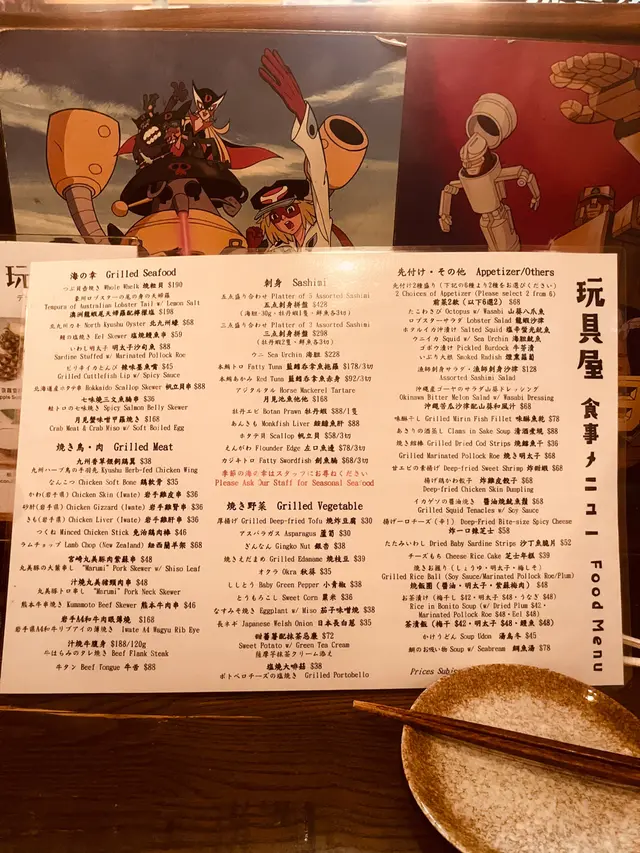 海の幸 Grilled Seafood
つぶ貝壺焼き Whole Whelk 燒螺貝 $190
豪州ロブスターの尾の身の天婦羅
Tempura of Australian Lobster Tail w/ Lemon Salt
澳洲龍蝦尾天婦羅配檸檬塩 $198
北九州カキ North Kyushu Oyster 北九州蠔 $68
鰻の塩焼き Eel Skewer 塩燒鰻魚串 $59
いわし明太子 明太子沙甸魚 $88
Sardine Stuffed w/ Marinated Pollock Roe
ピリキイカとんび 辣味墨魚嘴 $45
Grilled Cuttlefish Lip w/ Spicy Sauce
北海道産ホタテ串 Hokkaido Scallop Skewer 帆立貝串 $88
七味燒三文魚腩串 $36
鮭トロの七味焼き Spicy Salmon Belly Skewer
月見蟹味噌甲羅燒 $168
Crab Meat & Crab Miso w/ Soft Boiled Egg
焼き鳥・肉 Grilled Meat
九州香草雞翼 $38
九州ハーブ鳥の手羽先 Kyushu Herb-fed Chicken Wing
なんこつ Chicken Soft Bone 雞軟骨 $35
かわ(岩手) Chicken Skin (Iwate) 岩手雞皮串 $36
砂肝(岩手) Chicken Gizzard (Iwate) 岩手雞腎串 $36
きも(岩手) Chicken Liver (Iwate) 岩手雞肝串 $36
つくね Minced Chicken Stick 免治雞肉棒 $46
ラムチョップ Lamb Chop (New Zealand) 紐西蘭羊架 $68
宮崎丸真豚肉紫蘇串 $48
丸真豚の大葉串し "Marumi" Pork Skewer w/ Shiso Leaf
汁燒丸真豬頸肉串 $48
丸真豚トロ串し "Marumi" Pork Neck Skewer
熊本牛串焼き Kumamoto Beef Skewer 熊本牛肉串 $46
岩手A4和牛肉眼薄燒 $168
岩手県A4和牛リブアイの薄焼き Iwate A4 Wagyu Rib Eye
汁燒牛腹身 $188/120g
牛はらみのタレ焼き Beef Flank Steak
牛タン Beef Tongue 牛舌 $88
刺身 Sashimi
五点盛り合わせ Platter of 5 Assorted Sashimi
五点刺身拼盤 $428
三点盛り合わせ Platter of 3 Assorted Sashimi
三点刺身拼盤 $298
(牡丹蝦2隻・鮮魚各3切)
ウニ Sea Urchin 海胆 $228
本鮪トロ Fatty Tuna 藍鰭吞拿魚拖羅 $178/3切
本鮪あかみ Red Tuna 藍鰭吞拿魚赤身 $92/3切
アジタルタル Horse Mackerel Tartare
月見池魚他他 $168
牡丹エビ Botan Prawn 牡丹蝦 $88/1隻
あんきも Monkfish Liver 鮟鱇魚肝 $88
ホタテ貝 Scallop 帆立貝 $58/3切
えんがわ Flounder Edge 左口魚邊 $78/3切
カジキトロ Fatty Swordfish 劍魚腩 $68/3切
季節の海の幸はスタッフにお尋ねください
Please Ask Our Staff for Seasonal Seafood
焼き野菜 Grilled Vegetable
厚揚げ Grilled Deep-fried Tofu 燒炸豆腐 $30
アスパラガス Asparagus 蘆筍 $30
ぎんなん Gingko Nut 銀杏 $38
焼きえだまめ Grilled Edamame 燒枝豆 $39
オクラ Okra 秋葵 $35
ししとう Baby Green Pepper 小青椒 $38
とうもろこし Sweet Corn 粟米 $36
なすみそ焼き Eggplant w/ Miso 茄子味噌燒 $38
長ネギ Japanese Welsh Onion 日本長白葱 $35
甜蕃薯配抹茶忌廉 $72
Sweet Potato w/ Green Tea Cream
薩摩芋抹茶クリーム添え
塩燒大啡菇 $38
ポトベロチーズの塩焼き Grilled Portobello
先付け・その他 Appetizer/Others
先付け2種盛り (下記の6種より2種をお選びください)
2 Choices of Appetizer (Please select 2 from 6)
前菜2款 (以下6選2) $68
たこわさび Octopus w/ Wasabi 山葵八爪魚
ロブスターサラダ Lobster Salad 龍蝦沙律
ホタルイカ沖漬け Salted Squid 塩辛螢光魷魚
ウニイカ Squid w/ Sea Urchin 海胆魷魚
ゴボウ漬け Pickled Burdock 牛蒡漬
いぶり大根 Smoked Radish 煙熏蘿蔔
漁師刺身サラダ・漁師刺身沙律 $128
Assorted Sashimi Salad
沖縄産ゴーヤのサラダ山葵ドレッシング
Okinawan Bitter Melon Salad w/ Wasabi Dressing
沖縄苦瓜沙律配山葵和風汁 $68
味醂干し Grilled Mirin Fish Fillet 味醂魚乾 $78
あさりの酒蒸し Clams in Sake Soup 清酒煮蜆 $88
焼き鱈棒 Grilled Dried Cod Strips 燒鱈魚干 $36
Grilled Marinated Pollock Roe 燒明太子 $68
甘エビの素揚げ Deep-fried Sweet Shrimp 炸甜蝦 $68
揚げ鶏かわ餃子 炸雞皮餃子 $68
Deep-fried Chicken Skin Dumpling
イカゲソの醤油焼き 醬油燒魷魚鬚 $68
Grilled Squid Tenacles w/ Soy Sauce
揚げ一口チーズ (辛!) Deep-Fried Bite-size Spicy Cheese
炸一口辣芝士 $58
たたみいわし Dried Baby Sardine Strips 沙丁魚脆片 $52
チーズもち Cheese Rice Cake 芝士年糕 $39
焼きお握り (しょうゆ・明太子・梅しそ)
Grilled Rice Ball (Soy Sauce/Marinated Pollock Roe/Plum)
燒飯團 (醬油・明太子・紫蘇梅肉) $48
お茶漬け (梅干し $42・明太子 $48・うなぎ $48)
Rice in Bonito Soup (w/ Dried Plum $42・
Marinated Pollock Roe $48・Eel $48)
茶漬飯 (梅子 $42・明太子 $48・鰻魚 $48)
かけうどん Soup Udon 湯烏冬 $45
鯛のお吸い物 Soup w/ Seabream 鯛魚湯 $78
Prices Subj
玩具屋 食事メニュー Food Menu